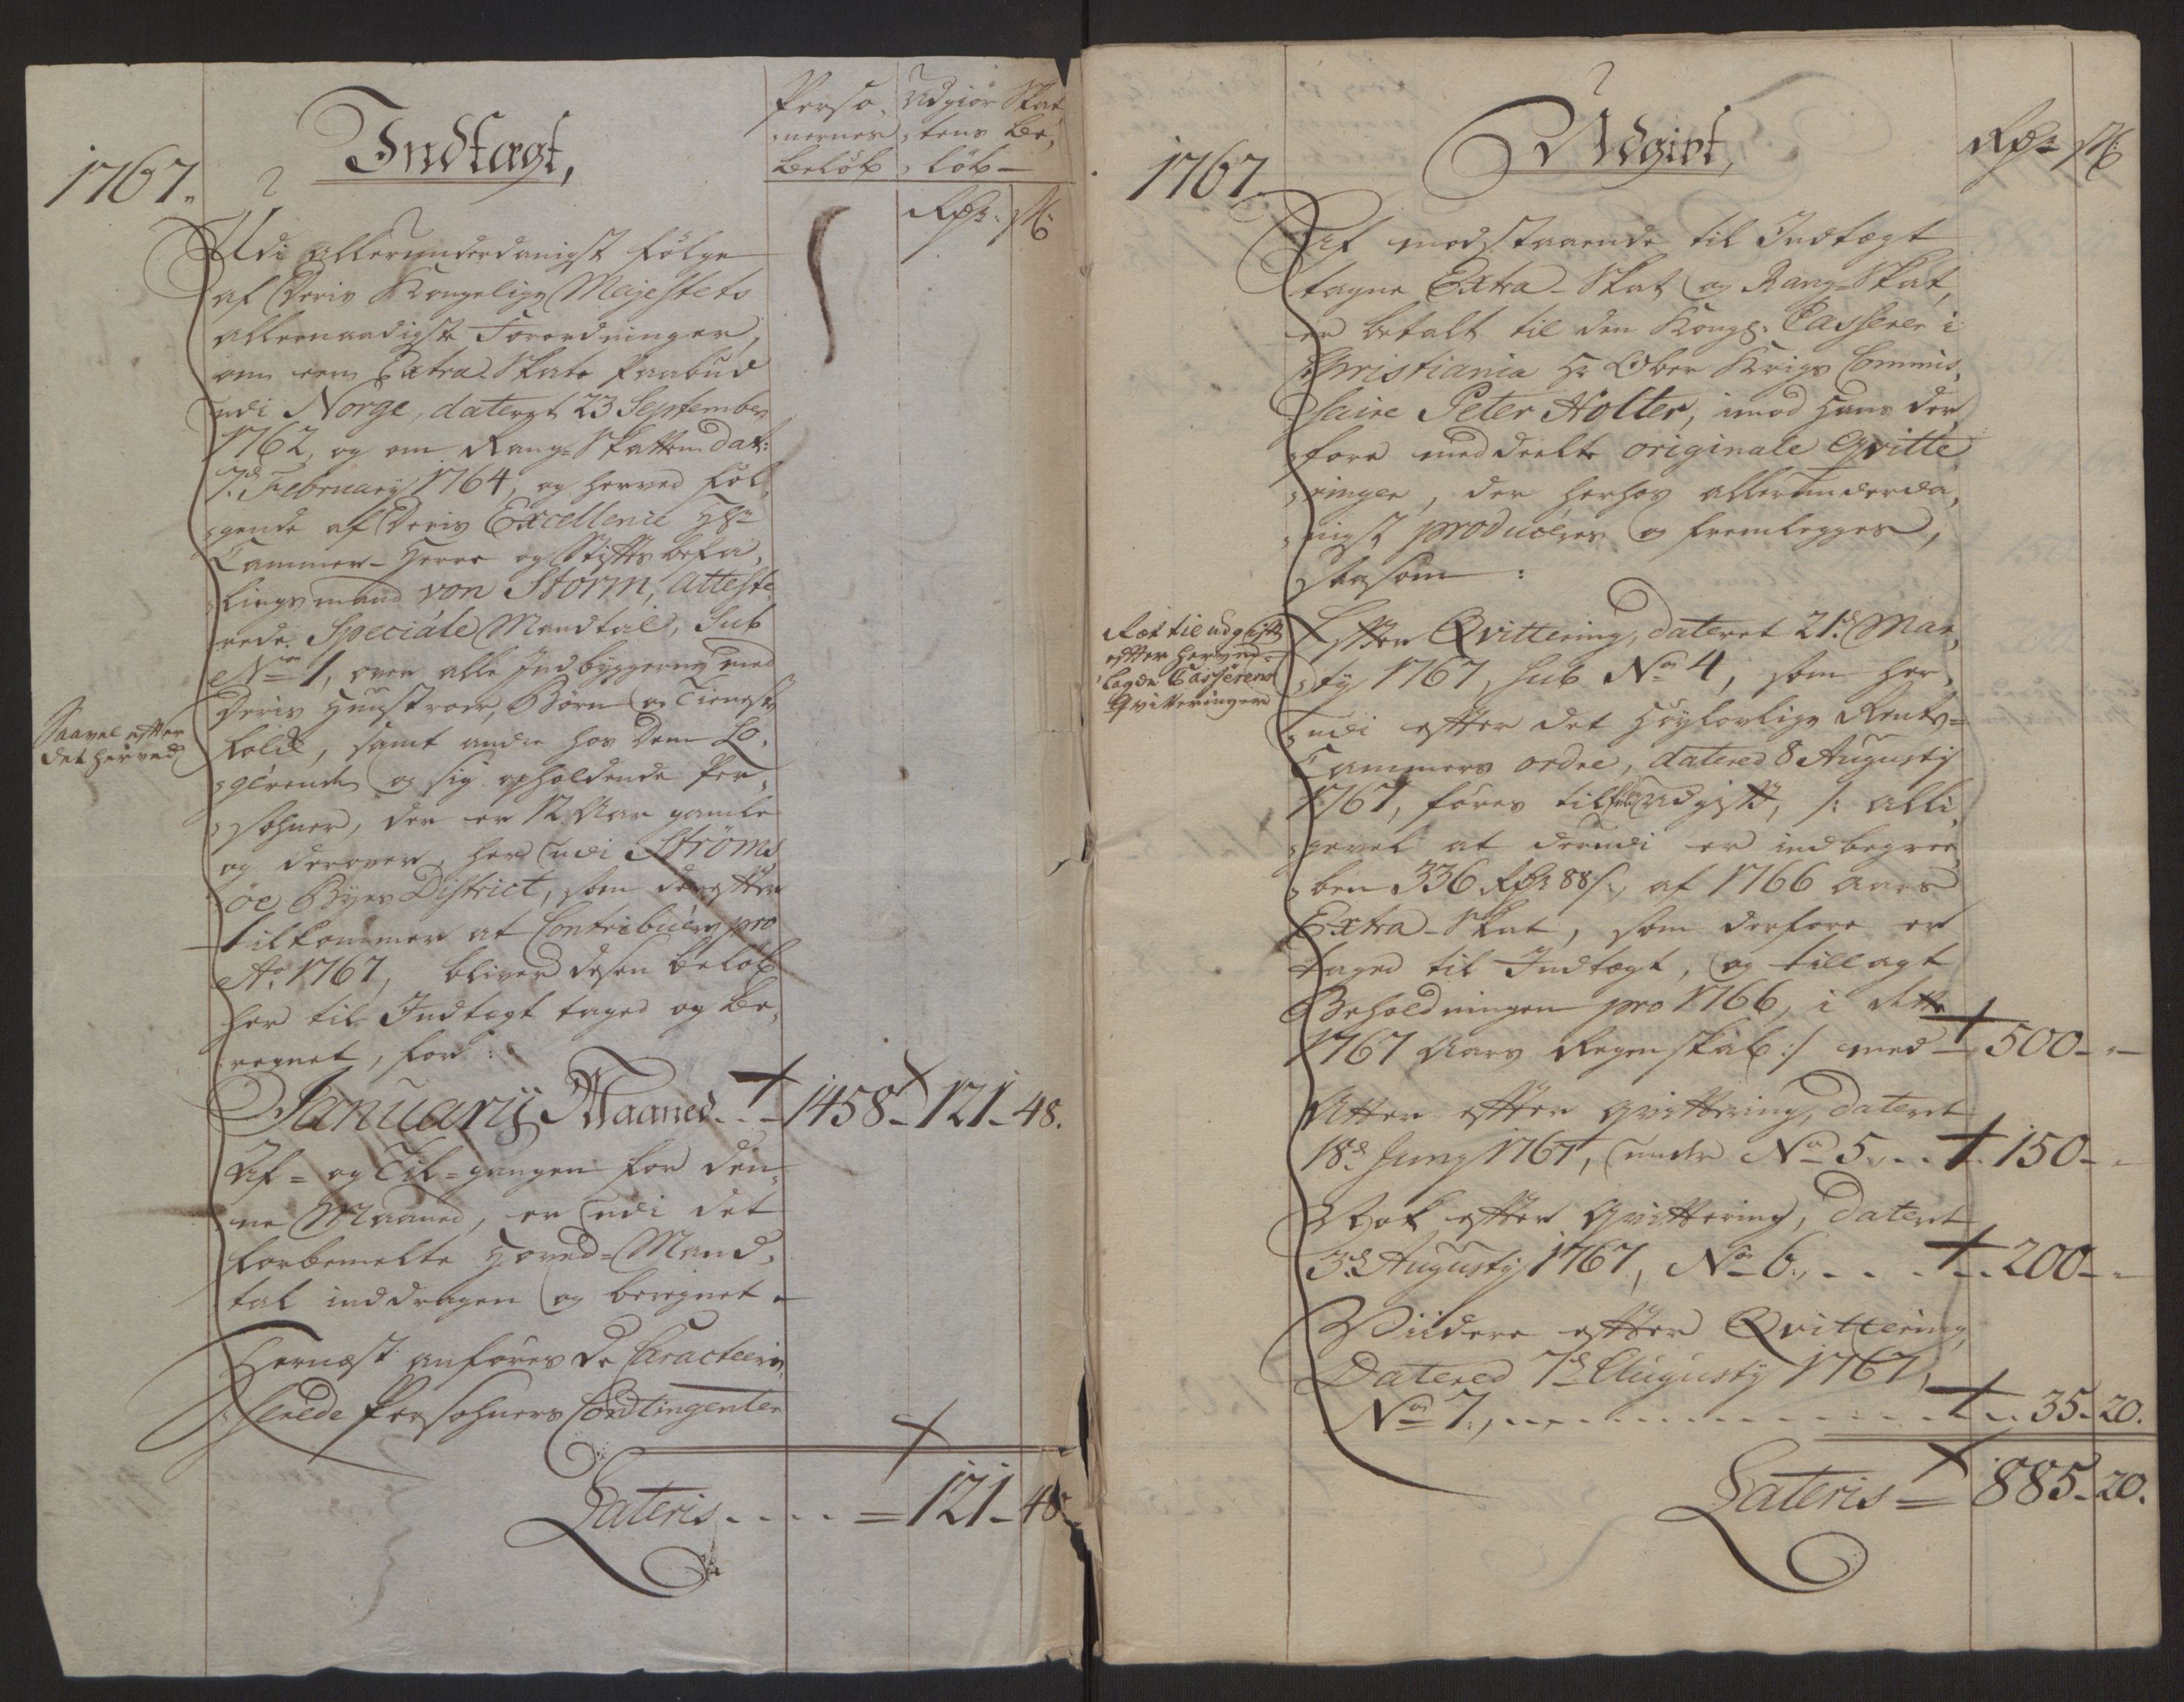 1767.
Indtægt,
Perso-
nernes
Beløb
Udgiør Skat
tens Be,
løb
Rdr: ß:
Udi allerunderdanigst følge
af Deris Kongelige Majestets
allernaadigste Forordninger,
om een Extra-Skats Paabud
udi Norge, dateret 23 September
1762, og om Rang-Skatten dat:
7d. February 1764, og herved føl,
gende af Deris Excellence Hr
Cammer-Herre og Stiftsbefa,
lingsmand von Storm, atteste
rede Speciale Mandtal, Sub
No 1, over alle Indbyggerne med
Deris Huustroer, Børn og Tieneste
folk, samt andre hos Dem Lo,
gerende og sig opholdende Per,
sohner, der er 12 Aar gamle
og derover, her udi Strøms
öe Byes District, som derefter
tilkommer at Contribuere pro
Ao 1767, bliver dessen beløb
her til Indtægt taged og be,
regnet, for:
Saavel efter
det herved
Januarij Maaned - 1458 - 121 - 48.
Af- og Til-gangen for den,
ne Maaned, er udi det
forbemelte Hoved-Mand,
tal inddragen og beregnet
Hernæst anføres de Characteri,
serede Persohners Contingenter
Lateris - - - - = 121 - 48
1767
Udgivt,
Rdr ß
Af modstaaende til Indtægt
tagne Extra-Skat og Rang-Skat,
er betalt til den Kongl: Casserer i
Christiania Hr Ober Krigs Commis,
saire Peter Holter, imod Hans der,
fore meddeelte originale Qvitte
ringer, der herhos allerunderda,
nigst produceres og fremlegges,
saasom:
Ræt til udgift
efter herved
lagde Casserens
Qvitteringer
Efter Qvittering, dateret 21d. Mar,
tij 1767, sub No 4, som her,
udi efter det Høylovlige Rente=
Cammers ordre, datered 8 Augustij
1767, føres til udgift, /: alli,
gevel at derudi er indbegre,
ben 336 Rdr 88 ß, af 1766 Aars
Extra-Skat, som derfore er
taged til Indtægt, og tillagt
Beholdningen pro 1766, i dette
1767 Aars Regenskab :/ med - 500 - -
Atter efter qvittering, dateret
18d. Junij 1767, under No 5 - - 150 - -
Nok efter qvittering, dateret
3d. Augustij 1767, No 6, - - - 200 - -
Viidere efter Qvittering
Datered 7d Augustij 1767,
No 7, - - - - - - - - - - 35 - 20.
Lateris = 885 - 20.